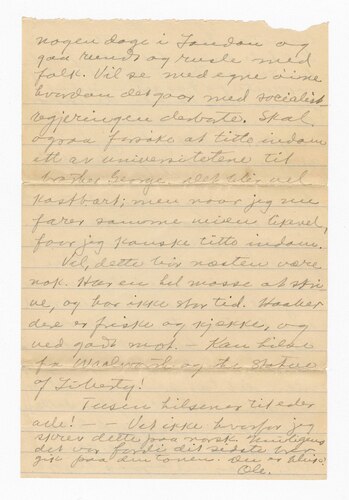 nogen dage i London og
gaa rundt og rusle med
folk. Vil se med egne øine
hvordan det gaar med socialist
regjeringen derborte. Skal
ogsaa forsøke at titte indom
ett av universitetene til
brother George. Det blir vel
kostbart; men naar jeg nu
farer samme veien likevel,
faar jeg kanske titte indom.
Vil, dette bør næsten være
nok. Har en hel masse at skri
ve, og har ikke stor tid. Haaber
dere er friske og kjække, og
ved godt mot. — Kan hilse
fra Woolworth og the Statue
of Liberty!
Tusen hilsener til eder
alle! — — Vet ikke hvorfor jeg
skrev dette paa norsk.
det var fordi det sidste brev
gik paa den tonen.
Ole.